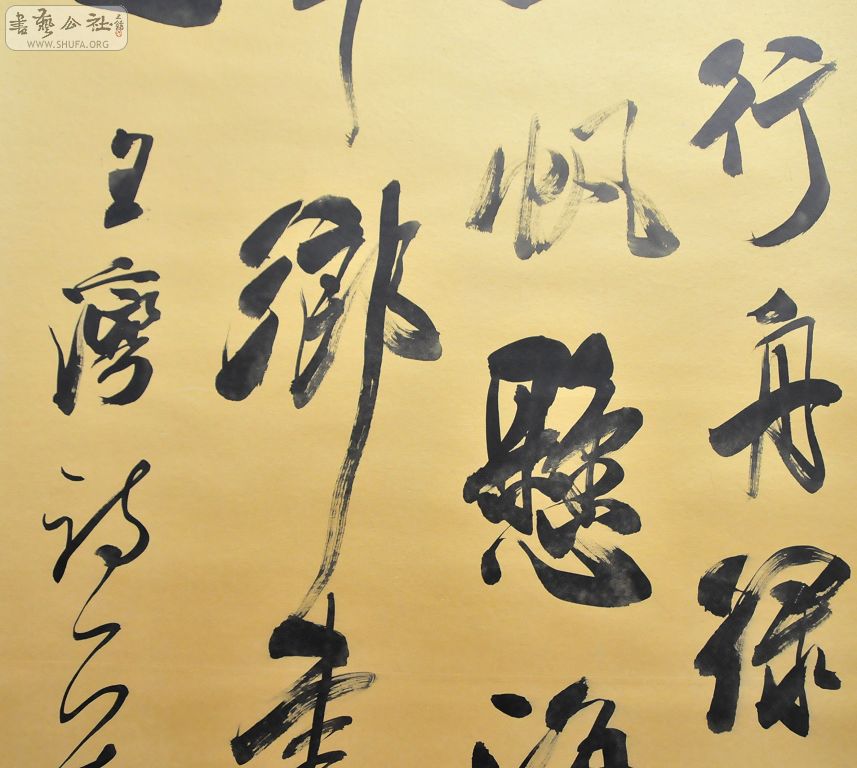 行舟綠
帆懸海
鄉書
王灣詩一
書藝公社
WWW.SHUFA.ORG